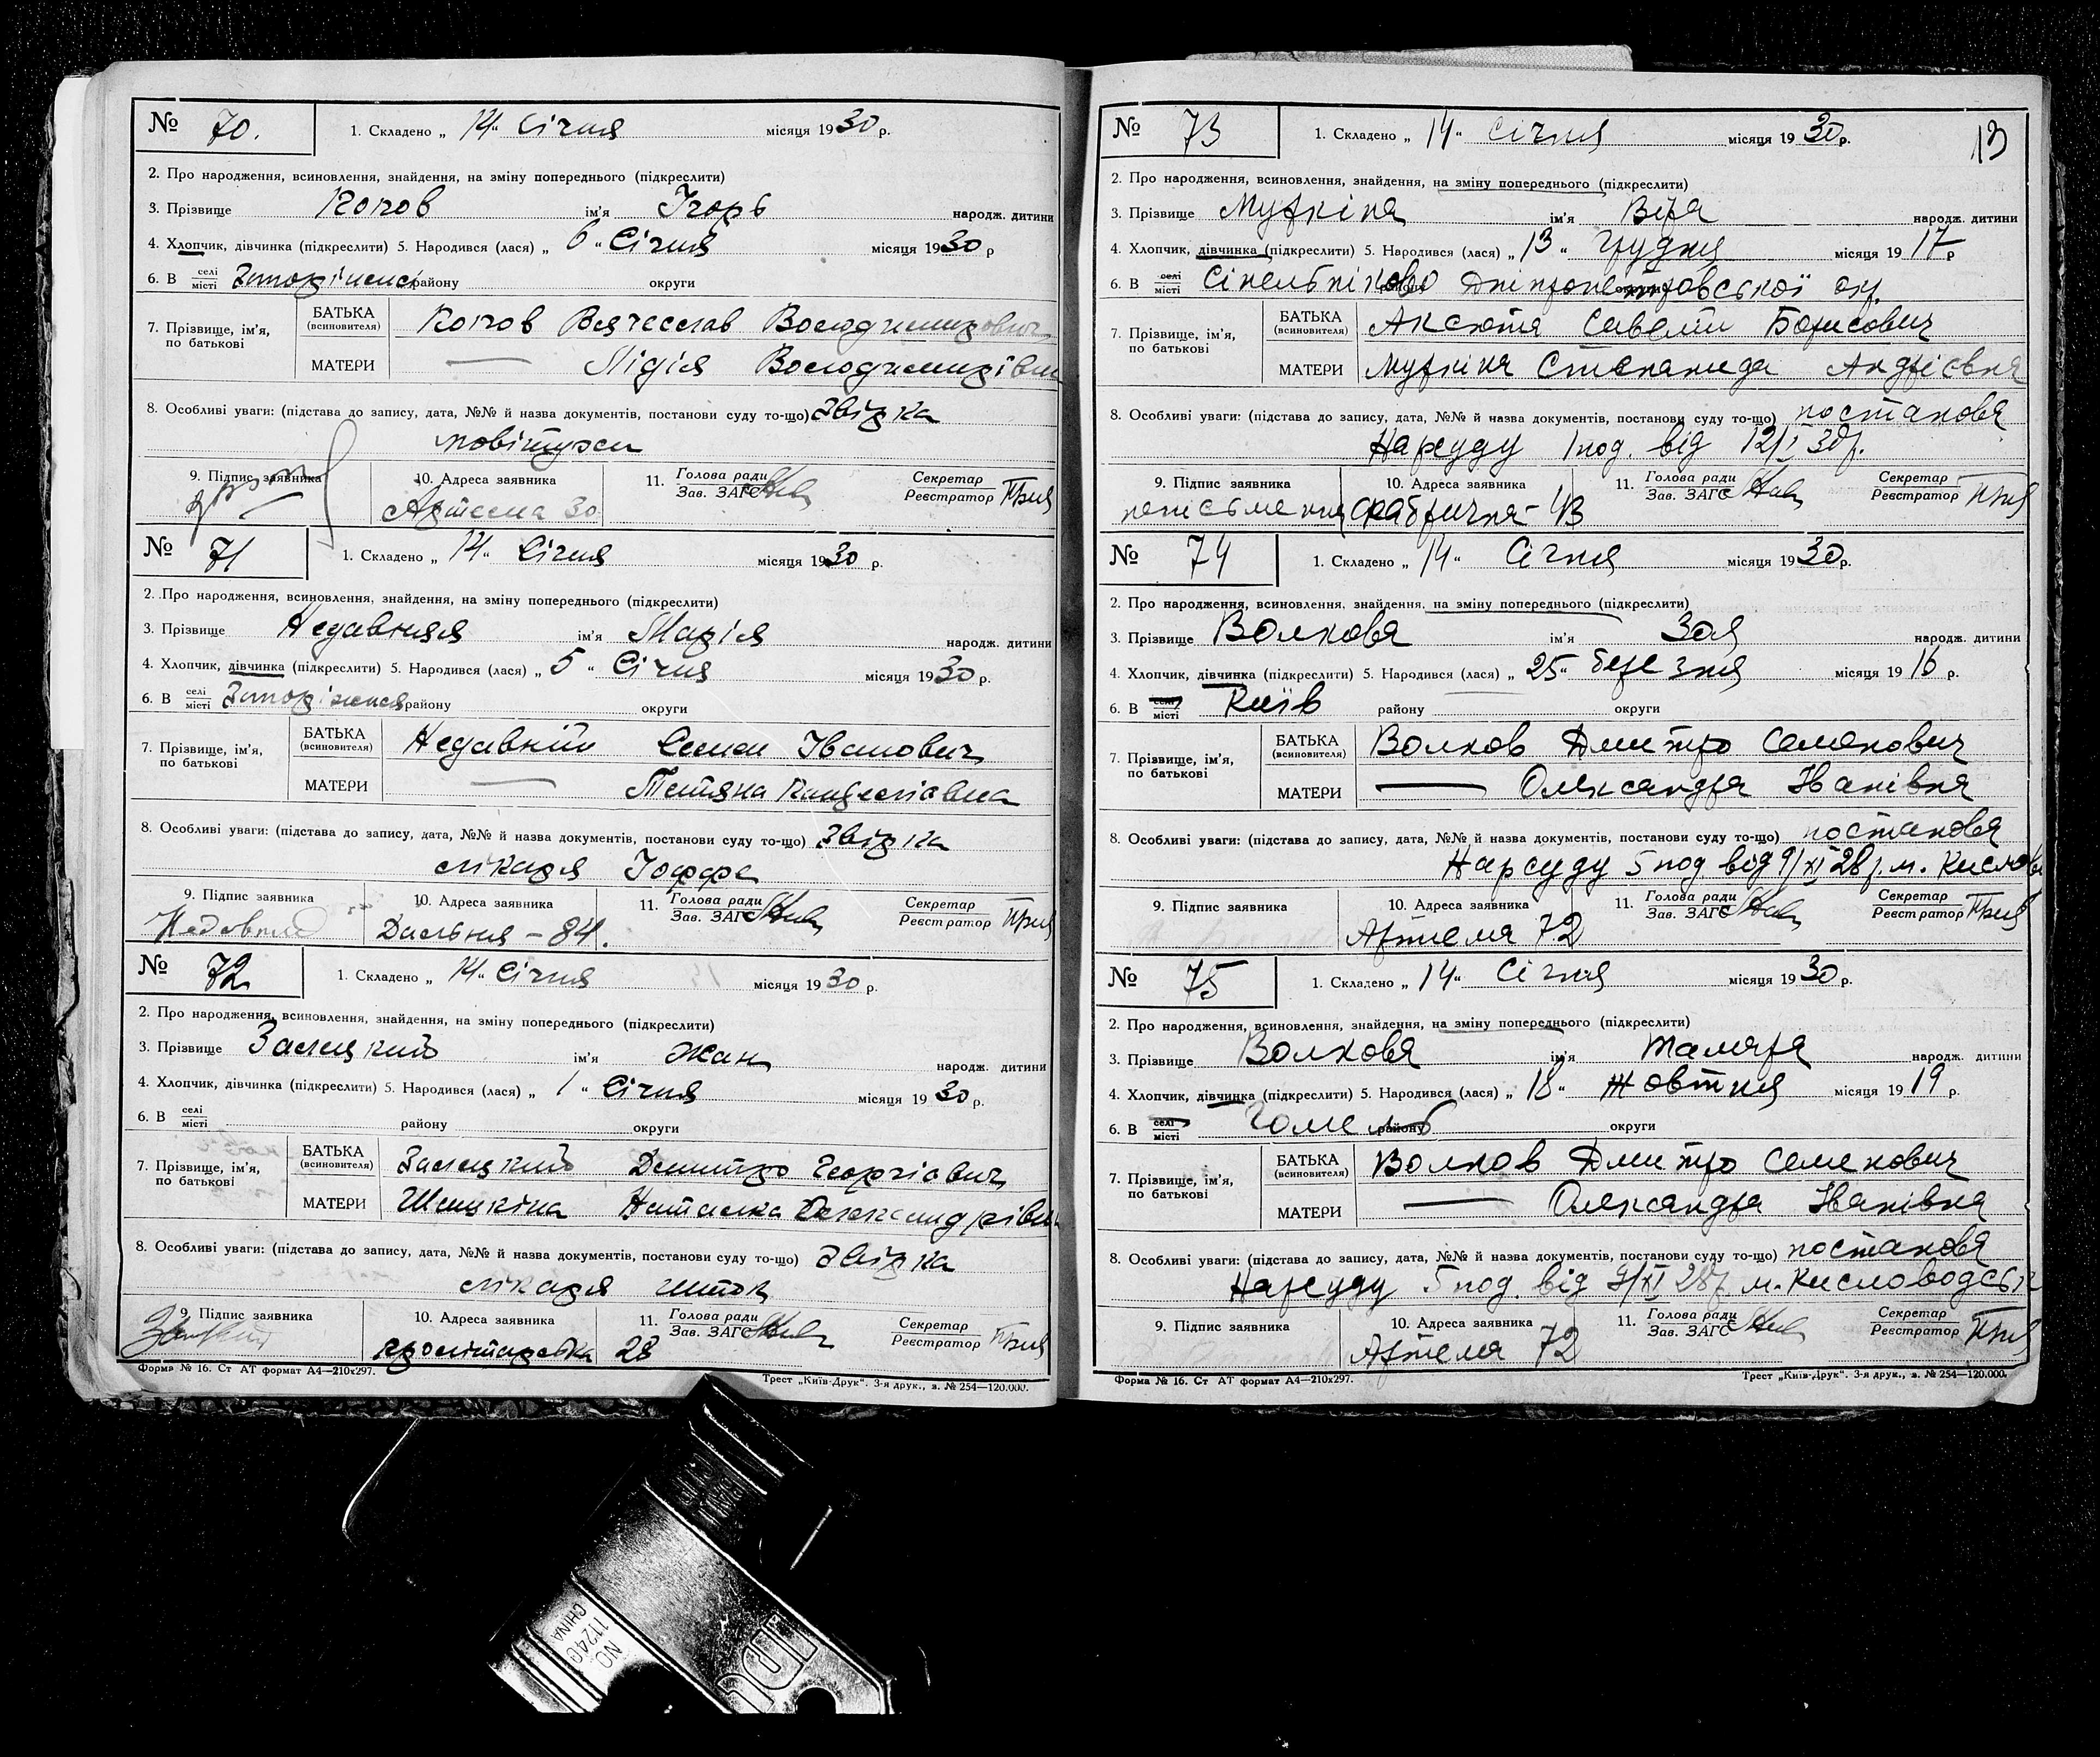 № 70.
1. Складено „ 14 “ Січня місяця 1930 р.
2. Про народження, всиновлення, знайдення, на зміну попереднього (підкреслити)
3. Прізвище Котов ім'я Ігорь народж. дитини
4. Хлопчик, дівчинка (підкреслити) 5. Народився (лася) „ 6 “ Січня місяця 1930 р
6. В селі місті району округи
7. Прізвище, ім'я, по батькові
БАТЬКА (всиновителя) Котов Вячеслав Володимирович
МАТЕРИ — Лідія Володимирівна
8. Особливі уваги: (підстава до запису, дата, №№ й назва документів, постанови суду то-що) Звідка
повітухи
9. Підпис заявника 10. Адреса заявника 11. Голова ради Зав. ЗАГС Секретар Реєстратор
Артема 30
№ 71
1. Складено „ 14 “ Січня місяця 1930 р.
2. Про народження, всиновлення, знайдення, на зміну попереднього (підкреслити)
3. Прізвище Недавняя ім'я Марія народж. дитини
4. Хлопчик, дівчинка (підкреслити) 5. Народився (лася) „ 5 “ Січня місяця 1930 р.
6. В селі місті району округи
7. Прізвище, ім'я, по батькові
БАТЬКА (всиновителя) Недавній Семен Іванович
МАТЕРИ — Тетяна
8. Особливі уваги: (підстава до запису, дата, №№ й назва документів, постанови суду то-що) Звідка
лікаря Іоффе
9. Підпис заявника 10. Адреса заявника 11. Голова ради Зав. ЗАГС Секретар Реєстратор
Дальня – 84.
№ 72
1. Складено „ 14 “ Січня місяця 1930 р.
2. Про народження, всиновлення, знайдення, на зміну попереднього (підкреслити)
3. Прізвище Залецкий ім'я Жан народж. дитини
4. Хлопчик, дівчинка (підкреслити) 5. Народився (лася) „ 1 “ Січня місяця 1930 р.
6. В селі місті району округи
7. Прізвище, ім'я, по батькові
БАТЬКА (всиновителя) Залецкий Дмитро Георгіович
МАТЕРИ Наталка Олександрівна
8. Особливі уваги: (підстава до запису, дата, №№ й назва документів, постанови суду то-що) Звідка
лікаря
9. Підпис заявника 10. Адреса заявника 11. Голова ради Зав. ЗАГС Секретар Реєстратор
пролітарська 28
Форма № 16. Ст АТ формат А4—210х297.
Трест „Київ-Друк“. 3-я друк., з. № 254—120.000.
13
№ 73
1. Складено „ 14 “ Січня місяця 1930 р.
2. Про народження, всиновлення, знайдення, на зміну попереднього (підкреслити)
3. Прізвище Муркіна ім'я Віра народж. дитини
4. Хлопчик, дівчинка (підкреслити) 5. Народився (лася) „ 13 “ Грудня місяця 1917 р
6. В селі місті Сінельніково району Дніпропетровської округи окр.
7. Прізвище, ім'я, по батькові
БАТЬКА (всиновителя) Аксюта Савелій Борисович
МАТЕРИ Муркіна Степанида Андрієвна
8. Особливі уваги: (підстава до запису, дата, №№ й назва документів, постанови суду то-що) постанова
Нарсуду 1 под. від 12/I 30 р.
9. Підпис заявника 10. Адреса заявника 11. Голова ради Зав. ЗАГС Секретар Реєстратор
неписьменна Фабрична -
№ 74
1. Складено „ 14 “ Січня місяця 1930 р.
2. Про народження, всиновлення, знайдення, на зміну попереднього (підкреслити)
3. Прізвище Волкова ім'я Зоя народж. дитини
4. Хлопчик, дівчинка (підкреслити) 5. Народився (лася) „ 25 “ березня місяця 1916 р.
6. В селі місті Київ району округи
7. Прізвище, ім'я, по батькові
БАТЬКА (всиновителя) Волков Дмитро Семенович
МАТЕРИ — Олександра Іванівна
8. Особливі уваги: (підстава до запису, дата, №№ й назва документів, постанови суду то-що) постанова
Нарсуду 5 под від 9/XI 28 р. м. Кислов
9. Підпис заявника 10. Адреса заявника 11. Голова ради Зав. ЗАГС Секретар Реєстратор
Артема 72
№ 75
1. Складено „ 14 “ Січня місяця 1930 р.
2. Про народження, всиновлення, знайдення, на зміну попереднього (підкреслити)
3. Прізвище Волкова ім'я Тамара народж. дитини
4. Хлопчик, дівчинка (підкреслити) 5. Народився (лася) „ 18 “ Жовтня місяця 1919 р.
6. В селі місті Гомель району округи
7. Прізвище, ім'я, по батькові
БАТЬКА (всиновителя) Волков Дмитро Семенович
МАТЕРИ — Олександра Іванівна
8. Особливі уваги: (підстава до запису, дата, №№ й назва документів, постанови суду то-що) постанова
Нарсуду 5 под. від 9/XI 28 р м. Кисловодськ
9. Підпис заявника 10. Адреса заявника 11. Голова ради Зав. ЗАГС Секретар Реєстратор
Артема 72
Форма № 16. Ст АТ формат А4—210х297.
Трест „Київ-Друк“. 3-я друк., з. № 254—120.000.
NO 11240
CHINA